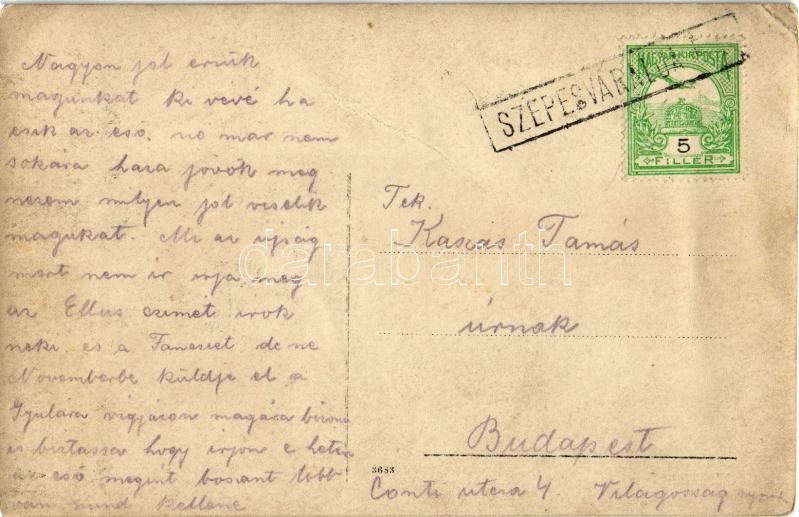 Nagyon jol erzük
magunkat ki vevé ha
esik az eső. no mar nem
sokára haza jövök meg
nezem milyen jol viselik
magukat. Mi az ujság
mert nem ir irja meg
az Ellus czimet irok
neki es a Fancsiet de ne
Novemberbe küldje el a
Gyulára vigyázon magára
is biztassa hogy irjon e heten
az eső megint bosant több
van mind kellene
SZEPESVÁRALJA
MAGYAR KIR. POSTA
5
FILLÉR
Tek.
Kaszás Tamás
úrnak
Budapest
Conti utcza 4. Világosság
3683
darabanth